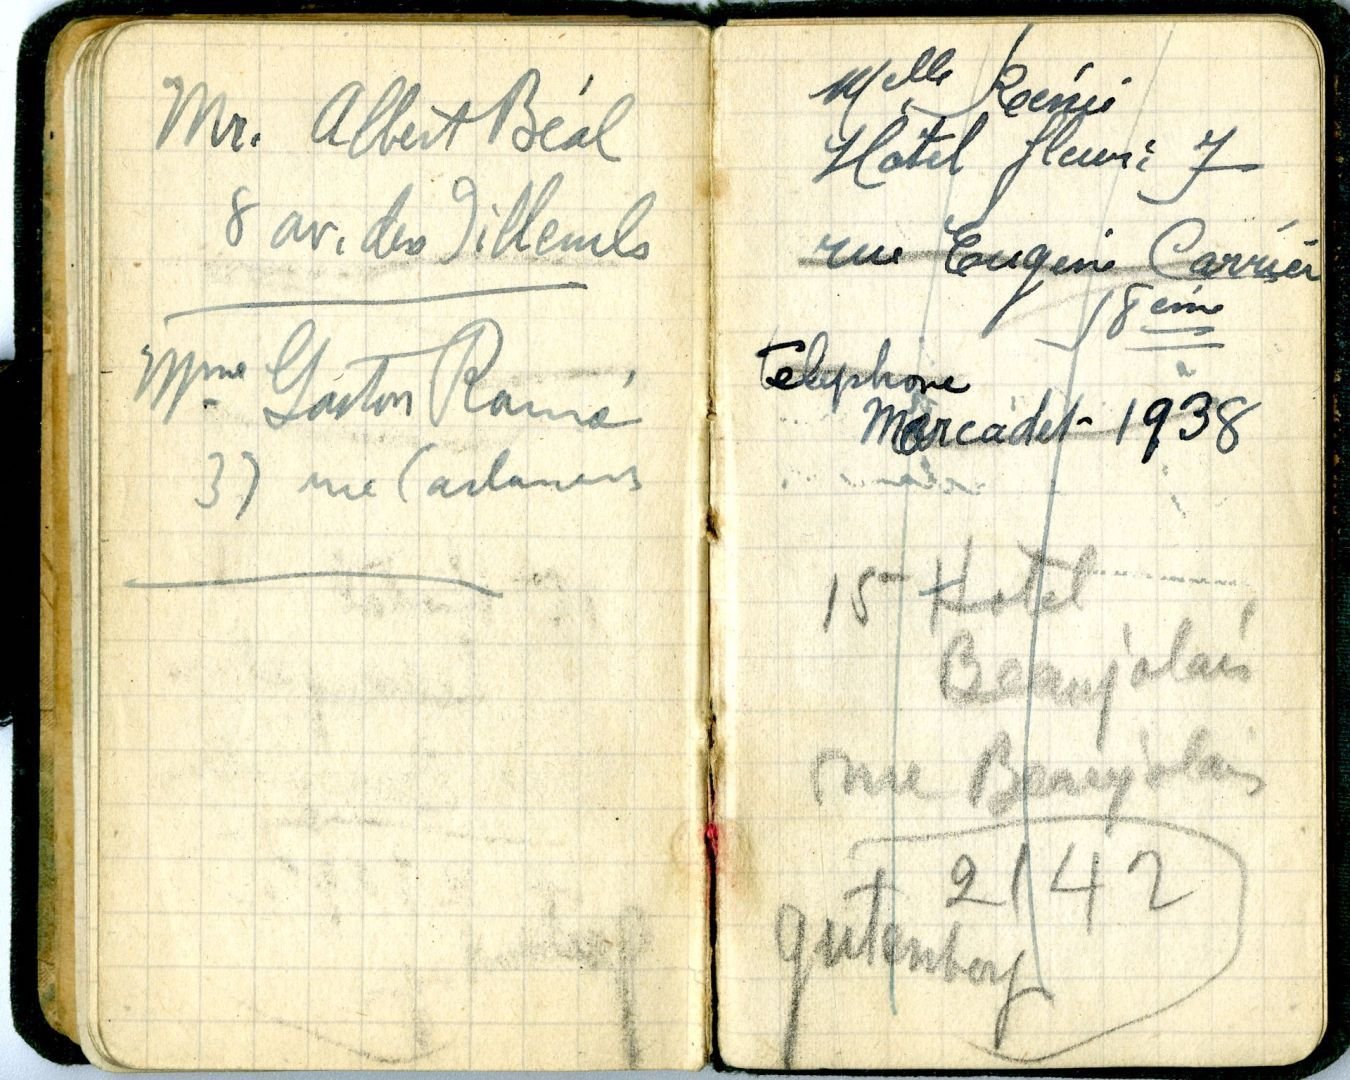 Mr. Albert Béal
8 av. des Tilleuls
Mme Gaston Ramé
37 rue
Melle Rénié
Hôtel fleuri 7
rue Eugène Carrièr
18 ème
Telephone
Marcadet - 1938
15 Hotel
Beaujolais
rue Beaujolais
2142
gutenberg